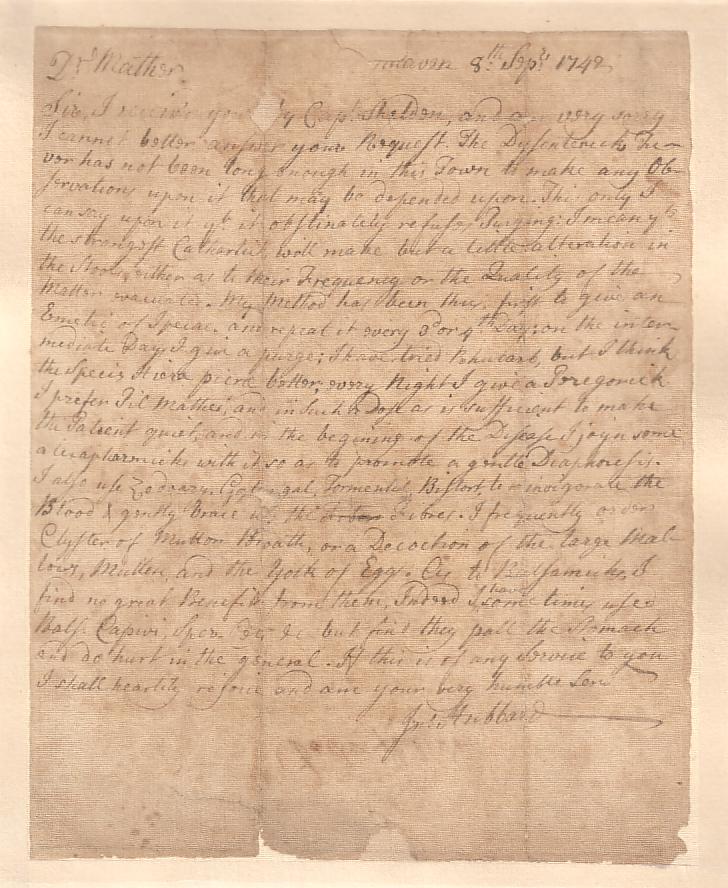 Dr. Mather. 8th Sepr. 1742
Sir, I receiv'd you by Capt. Shelden, and am very sorry
I cannot better answer your Request. The Dysenterick Fe-
ver has not been long enough in this Town to make any Ob-
servations upon it that may be depended upon. This only I
can say upon it yt. it obstinately refuses Purging: I mean yt.
the strongest Catharticks will make but a little alteration in
the Stools, either as to their Frequency or the Quality of the
Matter evacuated. My Method has been this, first to give an
Emetic of Specac. and repeat it every 3d or 4th Day; on the inter-
mediate Days I give a purge; I have tried Rhubarb, but I think
the Species Hiera picra better; every Night I give a Paregorick
I prefer Pil Mathei, and in such a Dose as is sufficient to make
the Patient quiet, and in the begining of the Disease I joyn some
alexapharmicks with it so as to promote a gentle Diaphoresis.
I also use Zedoary, Tormentil, Bistort, to invigorate the
Blood & gently brace up the Fibres. I frequently order
Clyster of Mutton Broath, or a Decoction of the large Mal-
lows, Mullen, and the Yolk of Egg. As to Balsamicks, I
find no great Benefit from them, Indeed I have some times used
Bals. Capivi, Sper. Ceti &c but find they pall the Stomach
and do hurt in the general. If this is of any Service to you
I shall heartily rejoice and am your very humble Serv
Jno. Hubbard